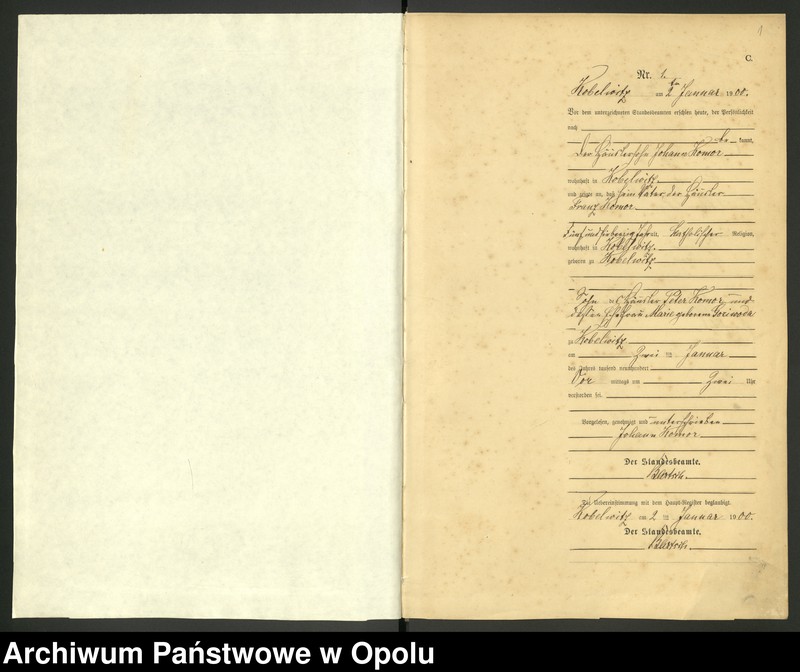 1
C.
Nr. 1.
Kobelwitz am 2ten Januar 1900.
Vor dem unterzeichneten Standesbeamten erschien heute, der Persönlichkeit
nach
be kannt,
der Häuslersohn Johann Komor
wohnhaft in Kobelwitz
und zeigte an, daß sein Vater, der Häusler
Franz Komor
fünf und siebenzig Jahre alt, katholischer Religion,
wohnhaft in Kobelwitz
geboren zu Kobelwitz
Sohn des Häusler Peter Komor und
dessen Ehefrau Marie geborene
zu Kobelwitz
am zwei ten Januar
des Jahres tausend neunhundert
Vor mittags um zwei Uhr
verstorben sei.
Vorgelesen, genehmigt und unterschrieben
Johann Komor
Der Standesbeamte.
Die Uebereinstimmung mit dem Haupt-Register beglaubigt.
Kobelwitz am 2 ten Januar 1900.
Der Standesbeamte.
Archiwum Państwowe w Opolu